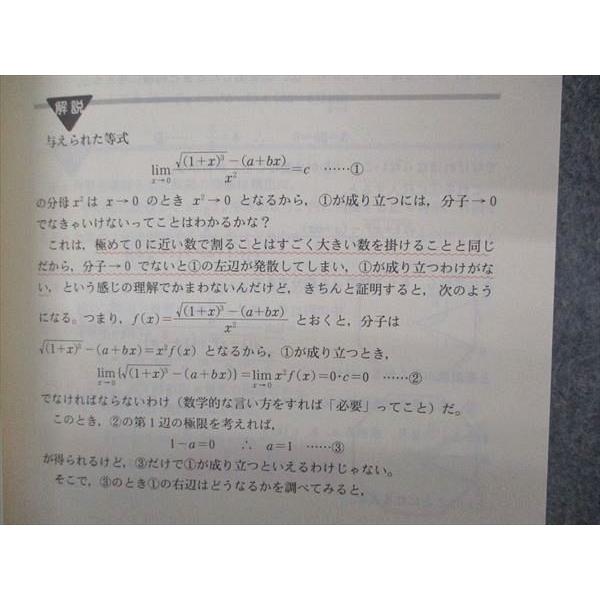 解説
与えられた等式
lim_{x→0} (√(1+x)³ −(a+bx))/x² =c ……①
の分母 x² は x→0 のとき x²→0 となるから，①が成り立つには，分子→0
でなきゃいけないってことはわかるかな？
これは，極めて0に近い数で割ることはすごく大きい数を掛けることと同じ
だから，分子→0 でないと①の左辺が発散してしまい，①が成り立つわけがな
い，という感じの理解でかまわないんだけど，きちんと証明すると，次のよう
になる。つまり，f(x)=(√(1+x)³ −(a+bx))/x² とおくと，分子は
√(1+x)³ −(a+bx)=x²f(x) となるから，①が成り立つとき，
lim_{x→0} {√(1+x)³ −(a+bx)}=lim_{x→0} x²f(x)=0·c=0 ……②
でなければならないわけ（数学的な言い方をすれば「必要」ってこと）だ。
このとき，②の第1辺の極限を考えれば，
1−a=0 ∴ a=1 ……③
が得られるけど，③だけで①が成り立つといえるわけじゃない。
そこで，③のとき①の右辺はどうなるかを調べてみると，